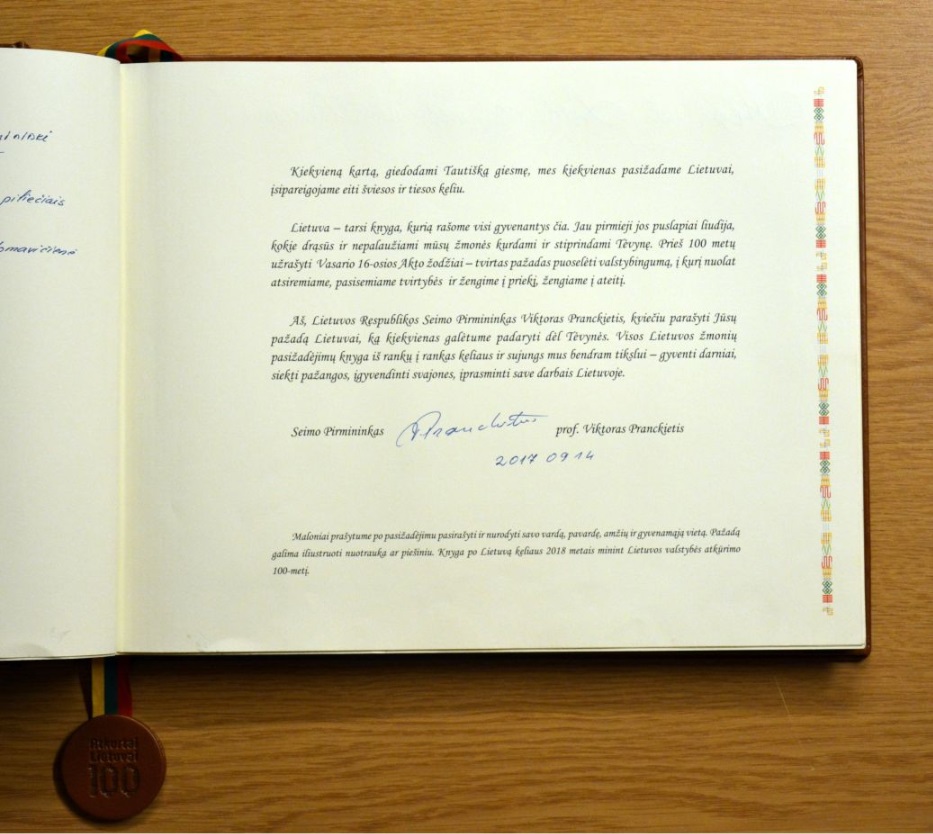 piliečiais
Kiekvieną kartą, giedodami Tautišką giesmę, mes kiekvienas pasižadame Lietuvai,
įsipareigojame eiti šviesos ir tiesos keliu.
Lietuva – tarsi knyga, kurią rašome visi gyvenantys čia. Jau pirmieji jos puslapiai liudija,
kokie drąsūs ir nepalaužiami mūsų žmonės kurdami ir stiprindami Tėvynę. Prieš 100 metų
užrašyti Vasario 16-osios Akto žodžiai – tvirtas pažadas puoselėti valstybingumą, į kurį nuolat
atsiremiame, pasisemiame tvirtybės ir žengime į priekį, žengiame į ateitį.
Aš, Lietuvos Respublikos Seimo Pirmininkas Viktoras Pranckietis, kviečiu parašyti Jūsų
pažadą Lietuvai, ką kiekvienas galėtume padaryti dėl Tėvynės. Visos Lietuvos žmonių
pasižadėjimų knyga iš rankų į rankas keliaus ir sujungs mus bendram tikslui – gyventi darniai,
siekti pažangos, įgyvendinti svajones, įprasminti save darbais Lietuvoje.
Seimo Pirmininkas Pranckietis prof. Viktoras Pranckietis
2017 09 14
Maloniai prašytume po pasižadėjimu pasirašyti ir nurodyti savo vardą, pavardę, amžių ir gyvenamąją vietą. Pažadą
galima iliustruoti nuotrauka ar piešiniu. Knyga po Lietuvą keliaus 2018 metais minint Lietuvos valstybės atkūrimo
100-metį.
Sukurta
Lietuvai
100